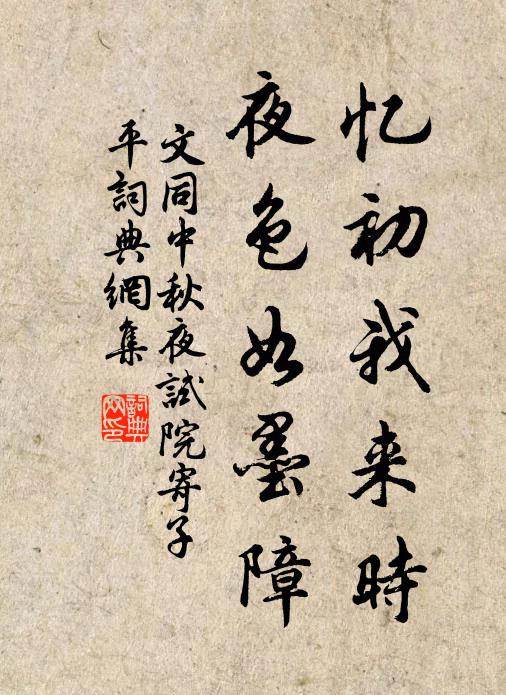 忆初我来时
夜色如墨障
文同中秋夜試院寄子
平詞典網集
詞典
网印